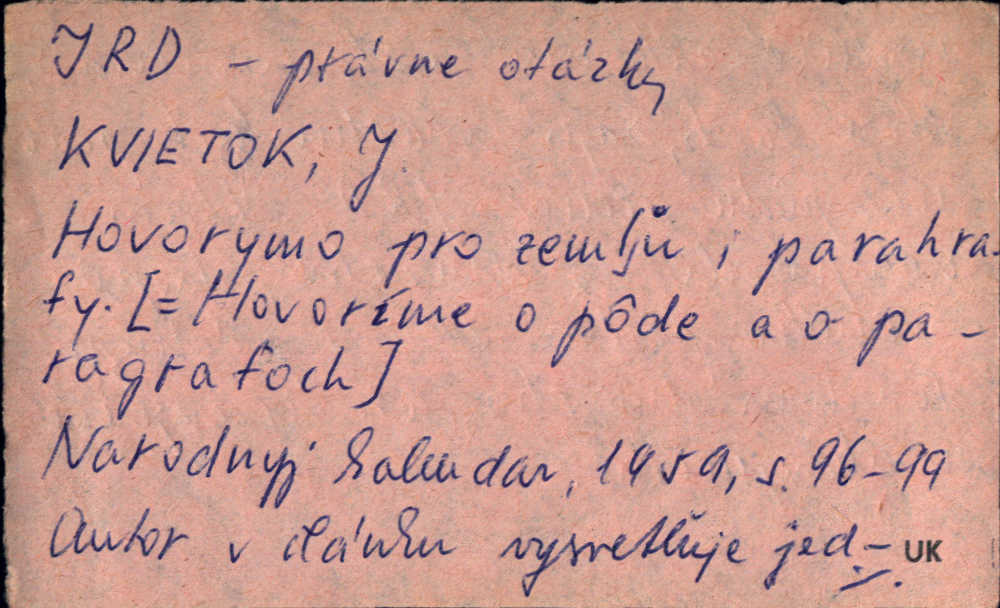 JRD - právne otázky
KVIETOK, J.
Hovorymo pro zemlju i parahra-
fy. [= Hovoríme o pôde a o pa-
ragrafoch]
Narodnyj kalendar, 1959, s. 96-99
Autor v článku vysvetľuje jed-
UK